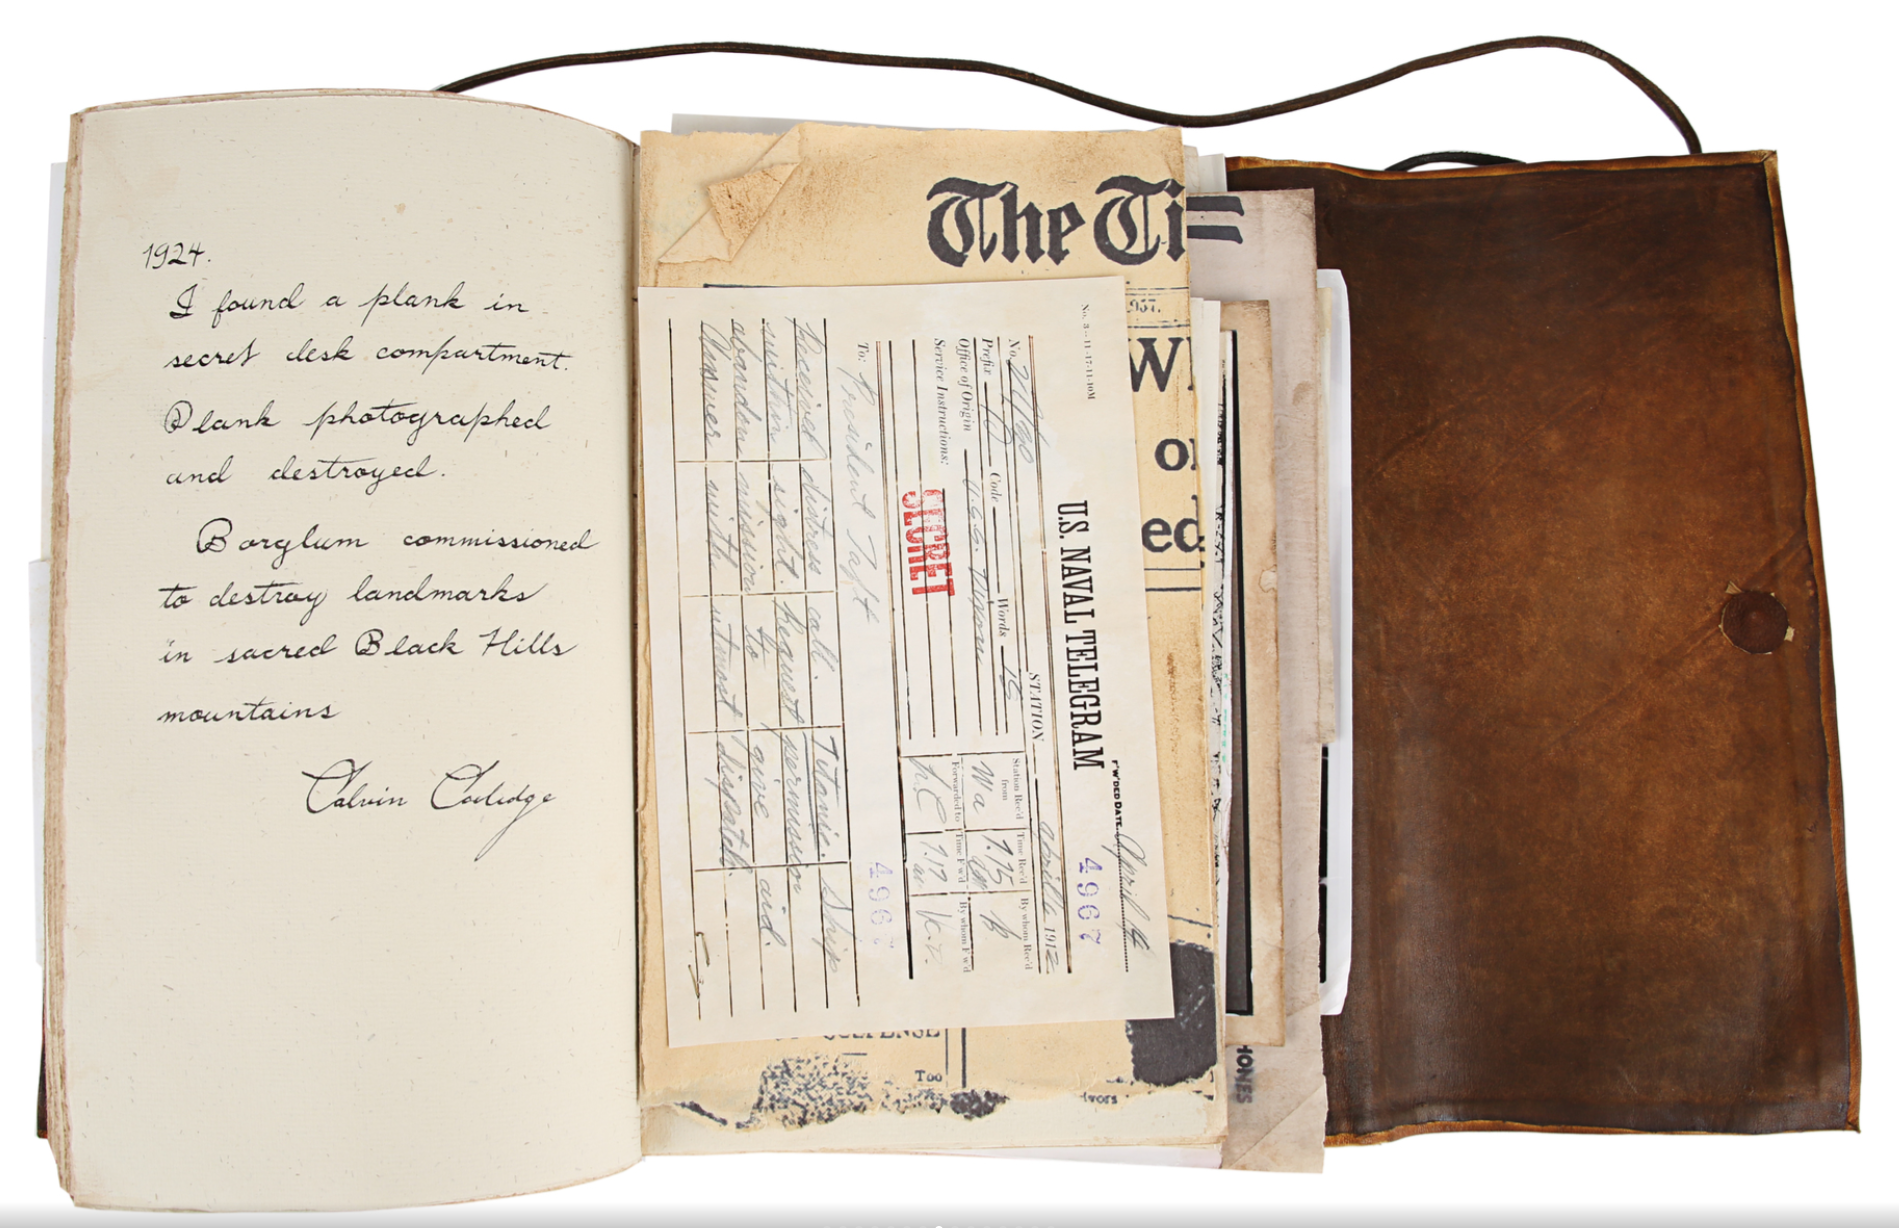 1924.
I found a plank in
secret desk compartment.
Plank photographed
and destroyed.
Borglum commissioned
to destroy landmarks
in sacred Black Hills
mountains
Calvin Coolidge
The Ti
957.
W
o
ed
SUSPENSE
Too
ivors
HONES
No. 3--11-17-11-10M
F'W'DED DATE April 14
4967
U.S. NAVAL TELEGRAM
STATION 1912
No.
Prefix Code Words 15
Office of Origin U.S.S.
Service Instructions:
Station Rec'd from Time Rec'd By whom Rec'd
Wa 7.15
Forwarded to Time F'w'd By whom F'w'd
7.17
SECRET
4967
To: President Taft
Received distress call. Titanic. Ship
within sight. Request permission
abandon mission to give aid.
Answer with utmost dispatch.